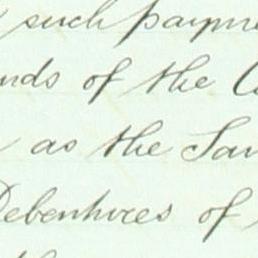 such payme
nds of the C
as the Sam
Debentures of